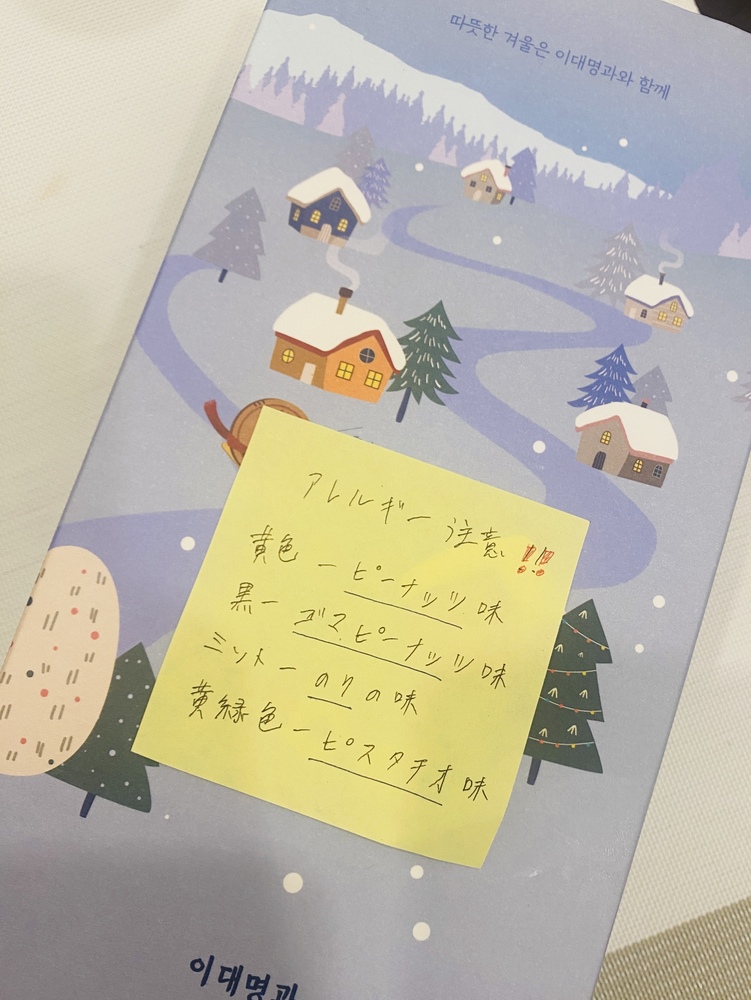 따뜻한 겨울은 이대명과와 함께
アレルギー注意!!
黄色 ー ピーナッツ味
黒ー ゴマピーナッツ味
ミント ー のりの味
黄緑色 ー ピスタチオ味
이대명과